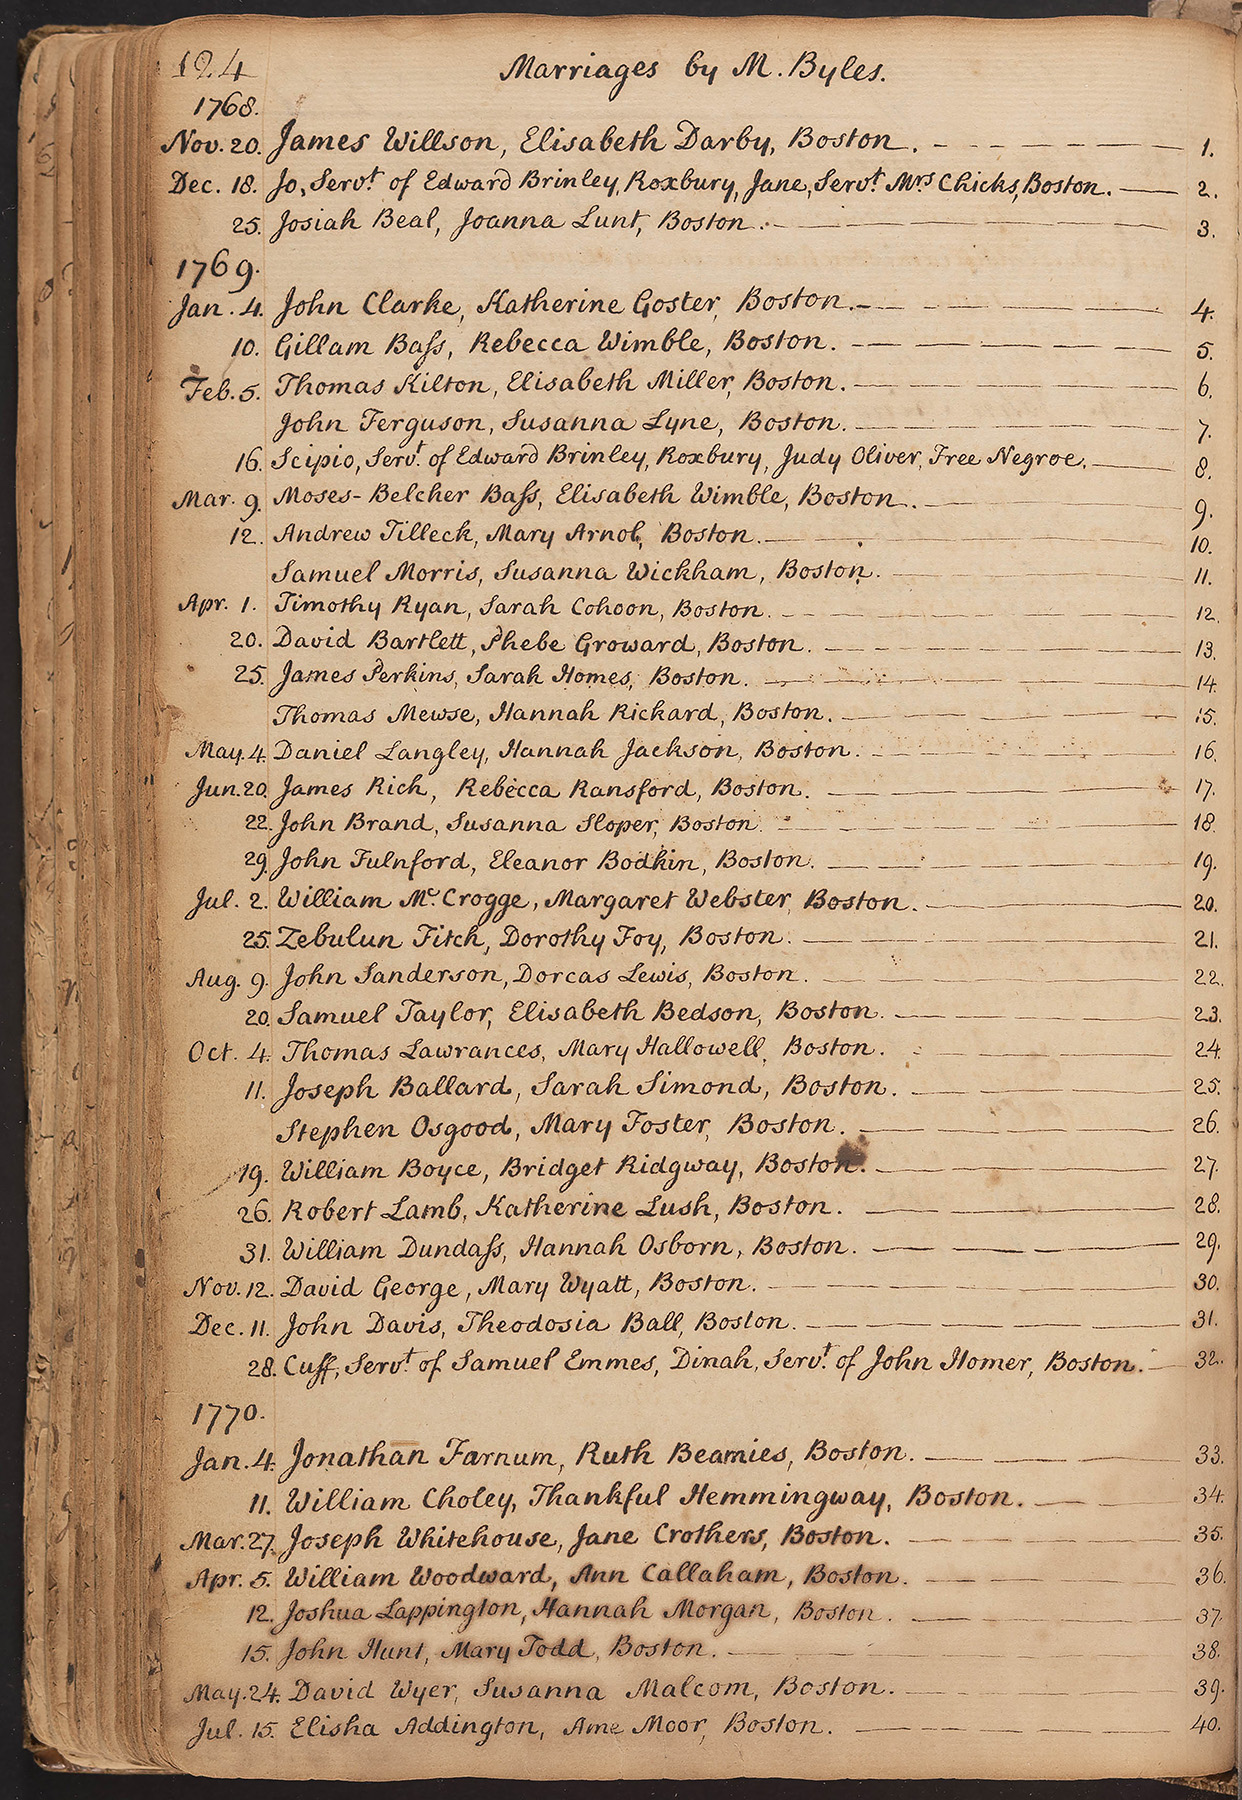 124 Marriages by M. Byles.
1768.
Nov. 20. James Willson, Elisabeth Darby, Boston. 1.
Dec. 18. Jo, Servt. of Edward Brinley, Roxbury, Jane, Servt. Mrs Chicks, Boston. 2.
25. Josiah Beal, Joanna Lunt, Boston. 3.
1769.
Jan. 4. John Clarke, Katherine Goster, Boston. 4.
10. Gillam Baſs, Rebecca Wimble, Boston. 5.
Feb. 5. Thomas Kilton, Elisabeth Miller, Boston. 6.
John Ferguson, Susanna Lyne, Boston. 7.
16. Scipio, Servt. of Edward Brinley, Roxbury, Judy Oliver, Free Negroe. 8.
Mar. 9. Moses-Belcher Baſs, Elisabeth Wimble, Boston. 9.
12. Andrew Tilleck, Mary Arnol, Boston. 10.
Samuel Morris, Susanna Wickham, Boston. 11.
Apr. 1. Timothy Ryan, Sarah Cohoon, Boston. 12.
20. David Bartlett, Phebe Groward, Boston. 13.
25. James Perkins, Sarah Homes, Boston. 14.
Thomas Mewse, Hannah Rickard, Boston. 15.
May. 4. Daniel Langley, Hannah Jackson, Boston. 16.
Jun. 20. James Rich, Rebecca Ransford, Boston. 17.
22. John Brand, Susanna Sloper, Boston. 18.
29. John Fulnford, Eleanor Bodkin, Boston. 19.
Jul. 2. William Mc. Crogge, Margaret Webster, Boston. 20.
25. Zebulun Fitch, Dorothy Foy, Boston. 21.
Aug. 9. John Sanderson, Dorcas Lewis, Boston. 22.
20. Samuel Taylor, Elisabeth Bedson, Boston. 23.
Oct. 4. Thomas Lawrances, Mary Hallowell, Boston. 24.
11. Joseph Ballard, Sarah Simond, Boston. 25.
Stephen Osgood, Mary Foster, Boston. 26.
19. William Boyce, Bridget Ridgway, Boston. 27.
26. Robert Lamb, Katherine Lush, Boston. 28.
31. William Dundaſs, Hannah Osborn, Boston. 29.
Nov. 12. David George, Mary Wyatt, Boston. 30.
Dec. 11. John Davis, Theodosia Ball, Boston. 31.
28. Cuff, Servt. of Samuel Emmes, Dinah, Servt. of John Homer, Boston. 32.
1770.
Jan. 4. Jonathan Farnum, Ruth Beamies, Boston. 33.
11. William Choley, Thankful Hemmingway, Boston. 34.
Mar. 27. Joseph Whitehouse, Jane Crothers, Boston. 35.
Apr. 5. William Woodward, Ann Callaham, Boston. 36.
12. Joshua Lappington, Hannah Morgan, Boston. 37.
15. John Hunt, Mary Todd, Boston. 38.
May. 24. David Wyer, Susanna Malcom, Boston. 39.
Jul. 15. Elisha Addington, Ame Moor, Boston. 40.